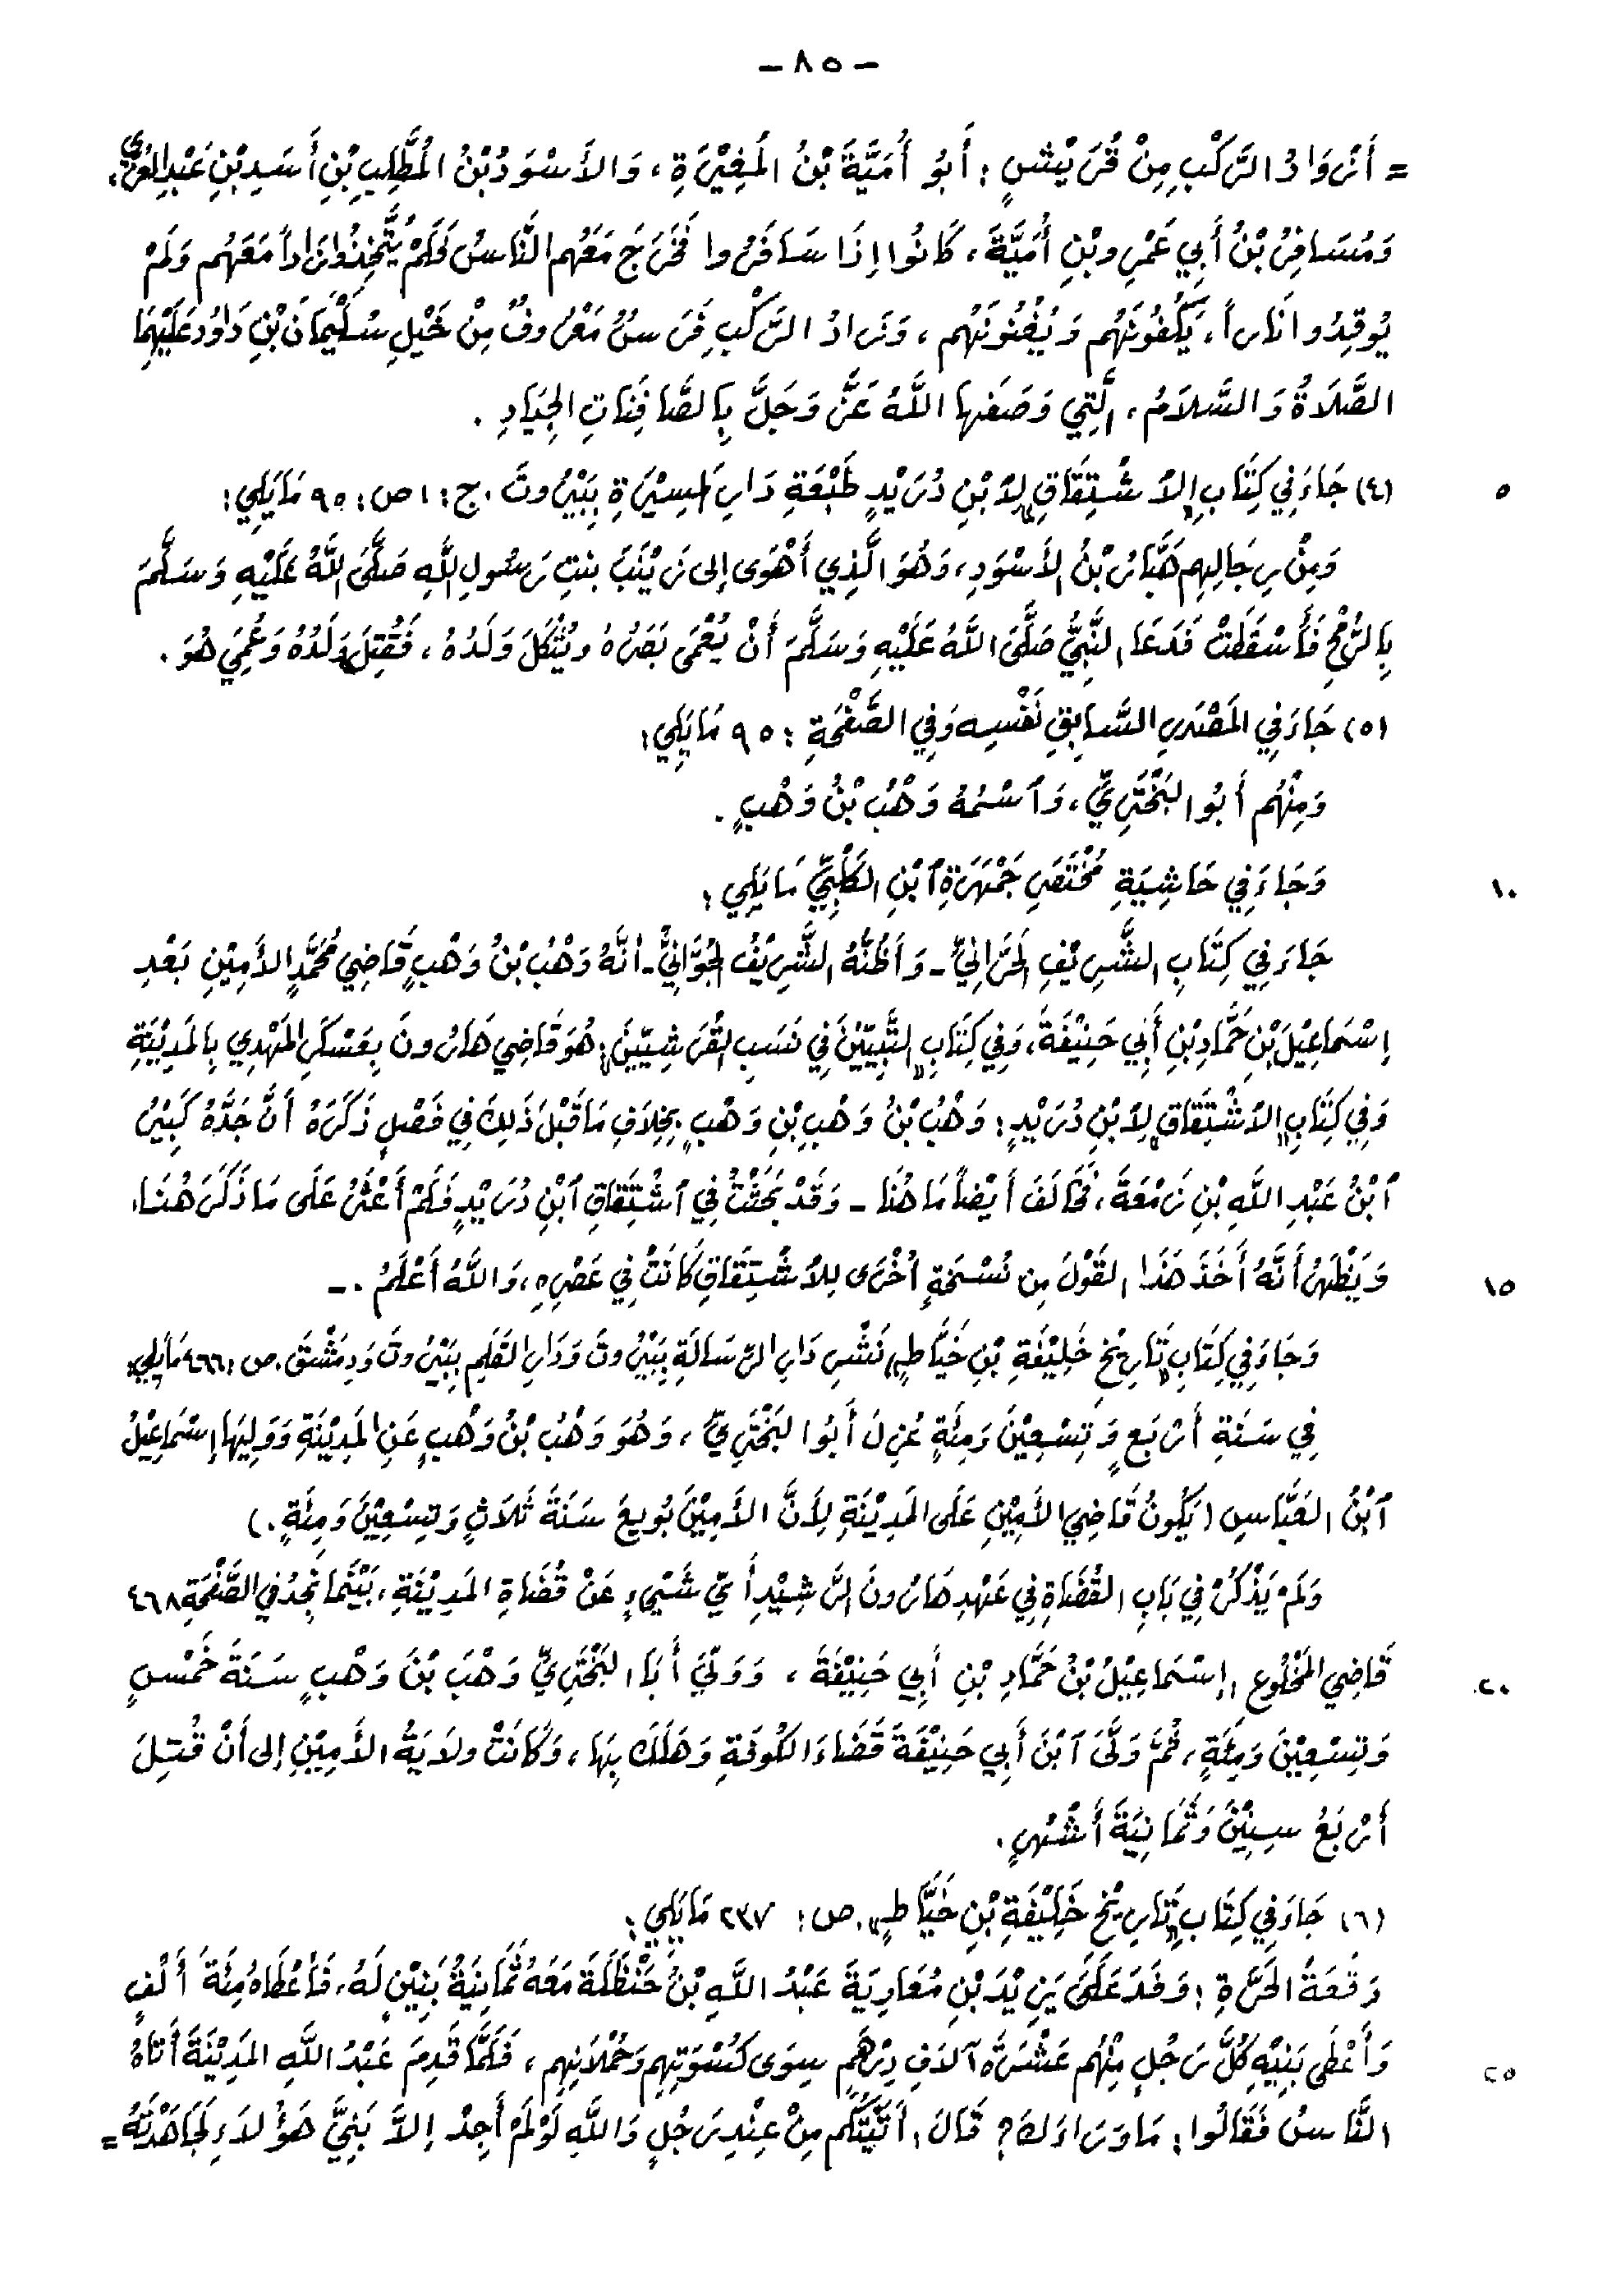 - ٨٥ -
= أَزْوَادُ الرَّكْبِ مِنْ قُرَيْشٍ : أَبُو أُمَيَّةَ بْنُ المُغِيْرَةِ ، وَالأَسْوَدُ بْنُ المُطَّلِبِ بْنِ أَسَدِ بْنِ عَبْدِ العُزَّى ،
وَمُسَافِرُ بْنُ أَبِي عَمْرِو بْنِ أُمَيَّةَ ، كَانُوا إِذَا سَافَرُوا فَخَرَجَ مَعَهُم النَّاسُ فَلَمْ يَتَّخِذُوا زَاداً مَعَهُم وَلَمْ
يُوقِدُوا نَاراً ، يَكْفُونَهُم وَيُغْنُونَهُم ، وَزَادُ الرَّكْبِ فَرَسٌ مَعْرُوفٌ مِنْ خَيْلِ سُلَيْمَانَ بْنِ دَاوُدَ عَلَيْهِمَا
الصَّلَاةُ وَالسَّلَامُ ، الَّتِي وَصَفَها اللَّهُ عَزَّ وَجَلَّ بِالصَّافِنَاتِ الجِيَادِ .
(٤) جَاءَ فِي كِتَابِ الاشْتِقَاقِ لِابْنِ دُرَيْدٍ طَبْعَةِ دَارِ المَسِيْرَةِ بِبَيْرُوتَ . ج : ١ ص : ٩٥ مَا يَلِي : ٥
وَمِنْ رِجَالِهِم هَبَّارُ بْنُ الأَسْوَدِ ، وَهُوَ الَّذِي أَهْوَى إِلى زَيْنَبَ بنتِ رَسُولِ اللَّهِ صَلَّى اللَّهُ عَلَيْهِ وَسَلَّمَ
بِالرُّمْحِ فَأَسْقَطَتْ فَدَعَا النَّبِيُّ صَلَّى اللَّهُ عَلَيْهِ وَسَلَّمَ أَنْ يُعْمَى بَصَرُهُ وَيُثْكَلَ وَلَدُهُ ، فَقُتِلَ وَلَدُهُ وَعُمِيَ هُوَ .
(٥) جَاءَ فِي المَصْدَرِ السَّابِقِ نَفْسِه وَفِي الصَّفْحَةِ : ٩٥ مَا يَلِي :
وَمِنْهُم أَبُو البَخْتَرِيِّ ، وَٱسْمُهُ وَهْبُ بْنُ وَهْبٍ .
وَجَاءَ فِي حَاشِيَةِ مُخْتَصَرِ جَمْهَرَةِ ٱبْنِ الكَلْبِيِّ مَا يَلِي : ١٠
جَاءَ فِي كِتَابِ الشَّرِيْفِ الحَرَّانِيِّ - وَأَظُنُّهُ الشَّرِيْفُ الجُوَّانِيُّ - أَنَّهُ وَهْبُ بْنُ وَهْبٍ قَاضِي مُحَمَّدٍ الأَمِيْنِ بَعْدِ
إِسْمَاعِيْلَ بْنِ حَمَّادِ بْنِ أَبِي حَنِيْفَةَ ، وَفِي كِتَابِ " التَّبْيِيْنَ فِي نَسَبِ القُرَشِيِّيْنَ " : هُوَ قَاضِي هَارُونَ بِعَسْكَرِ المَهْدِي بِالمَدِيْنَةِ
وَفِي كِتَابِ " الاشْتِقَاقِ " لِابْنِ دُرَيْدٍ : وَهْبُ بْنُ وَهْبِ بْنِ وَهْبٍ بِخِلَافِ مَا قَبْلَ ذَلِكَ فِي فَصْلٍ ذَكَرَهُ أَنَّ جَدَّهُ كَبِيْرُ
ٱبْنُ عَبْدِ اللَّهِ بْنِ زَمْعَةَ ، فَخَالَفَ أَيْضاً مَا هُنَا - وَقَدْ بَحَثْتُ فِي ٱشْتِقَاقِ ٱبْنِ دُرَيْدٍ فَلَمْ أَعْثُرْ عَلَى مَا ذَكَرَ هُنَا ،
وَيَظْهَرُ أَنَّهُ أَخَذَ هَذَا القَوْلَ مِن نُسْخَةٍ أُخْرَى لِلاشْتِقَاقِ كَانَتْ فِي عَصْرِهِ ، وَاللَّهُ أَعْلَمُ . - ١٥
وَجَاءَ فِي كِتَابِ " تَارِيْخِ خَلِيْفَةَ بْنِ خَيَّاطٍ " نَشْرِ دَارِ الرِّسَالَةِ بِبَيْرُوتَ وَدَارِ القَلَمِ بِبَيْرُوتَ وَدِمَشْقَ . ص : ٤٦٦ مَا يَلِي :
فِي سَنَةِ أَرْبَعٍ وَتِسْعِيْنَ وَمِئَةٍ عُزِلَ أَبُو البَخْتَرِيِّ ، وَهُوَ وَهْبُ بْنُ وَهْبٍ عَنِ المَدِيْنَةِ وَوَلِيَهَا إِسْمَاعِيْلُ
ٱبْنُ العَبَّاسِ ( يَكُونُ قَاضِي الأَمِيْنِ عَلَى المَدِيْنَةِ لِأَنَّ الأَمِيْنَ بُويِعَ سَنَةَ ثَلَاثٍ وَتِسْعِيْنَ وَمِئَةٍ . )
وَلَمْ يَذْكُرْ فِي بَابِ القُضَاةِ فِي عَهْدِ هَارُونَ الرَّشِيْدِ أَيَّ شَيْءٍ عَنْ قُضَاةِ المَدِيْنَةِ ، بَيْنَمَا نَجِدُ فِي الصَّفْحَةِ ٤٦٨
قَاضِي المَخْلُوعِ : إِسْمَاعِيْلُ بْنُ حَمَّادِ بْنِ أَبِي حَنِيْفَةَ ، وَوَلَّى أَبَا البَخْتَرِيِّ وَهْبَ بْنَ وَهْبٍ سَنَةَ خَمْسٍ ٢٠
وَتِسْعِيْنَ وَمِئَةٍ ، ثُمَّ وَلَّى ٱبْنَ أَبِي حَنِيْفَةَ قَضَاءَ الكُوفَةِ وَهَلَكَ بِهَا ، وَكَانَتْ ولَايَةُ الأَمِيْنِ إِلى أَنْ قُتِلَ
أَرْبَعُ سِنِيْنَ وَثَمَانِيَةَ أَشْهُرٍ .
(٦) جَاءَ فِي كِتَابِ " تَارِيْخِ خَلِيْفَةَ بْنِ خَيَّاطٍ " . ص : ٢٣٧ مَا يَلِي :
وَقْعَةُ الحَرَّةِ : وَفَدَ عَلَى يَزِيْدَ بْنِ مُعَاوِيَةَ عَبْدُ اللَّهِ بْنُ حَنْظَلَةَ مَعَهُ ثَمَانِيَةُ بَنِيْنٍ لَهُ ، فَأَعْطَاهُ مِئَةَ أَلْفٍ
وَأَعْطَى بَنِيْهِ كُلَّ رَجُلٍ مِنْهُم عَشْرَةَ آلَافِ دِرْهَمٍ سِوَى كُسْوَتِهِم وَحُمْلَانِهِم ، فَلَمَّا قَدِمَ عَبْدُ اللَّهِ المَدِيْنَةَ أَتَاهُ ٢٥
النَّاسُ فَقَالُوا : مَا وَرَاءَكَ ؟ قَالَ : أَتَيْتُكُم مِنْ عِنْدِ رَجُلٍ وَاللَّهِ لَوْ لَمْ أَجِدْ إِلاَّ بَنِيَّ هَؤُلَاءِ لَجَاهَدْتُهُ =